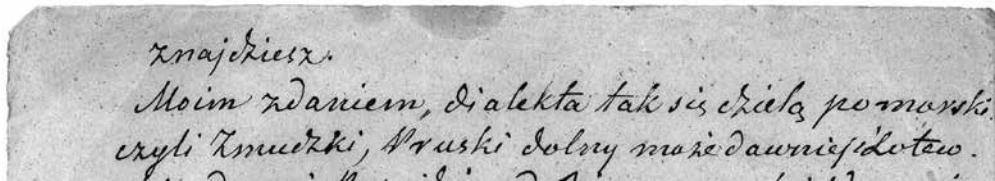 znajdziesz.
Moim zdaniem, dialekta tak się dzielą pomorski
czyli Żmudzki, Pruski dolny może dawniej i Łotew.